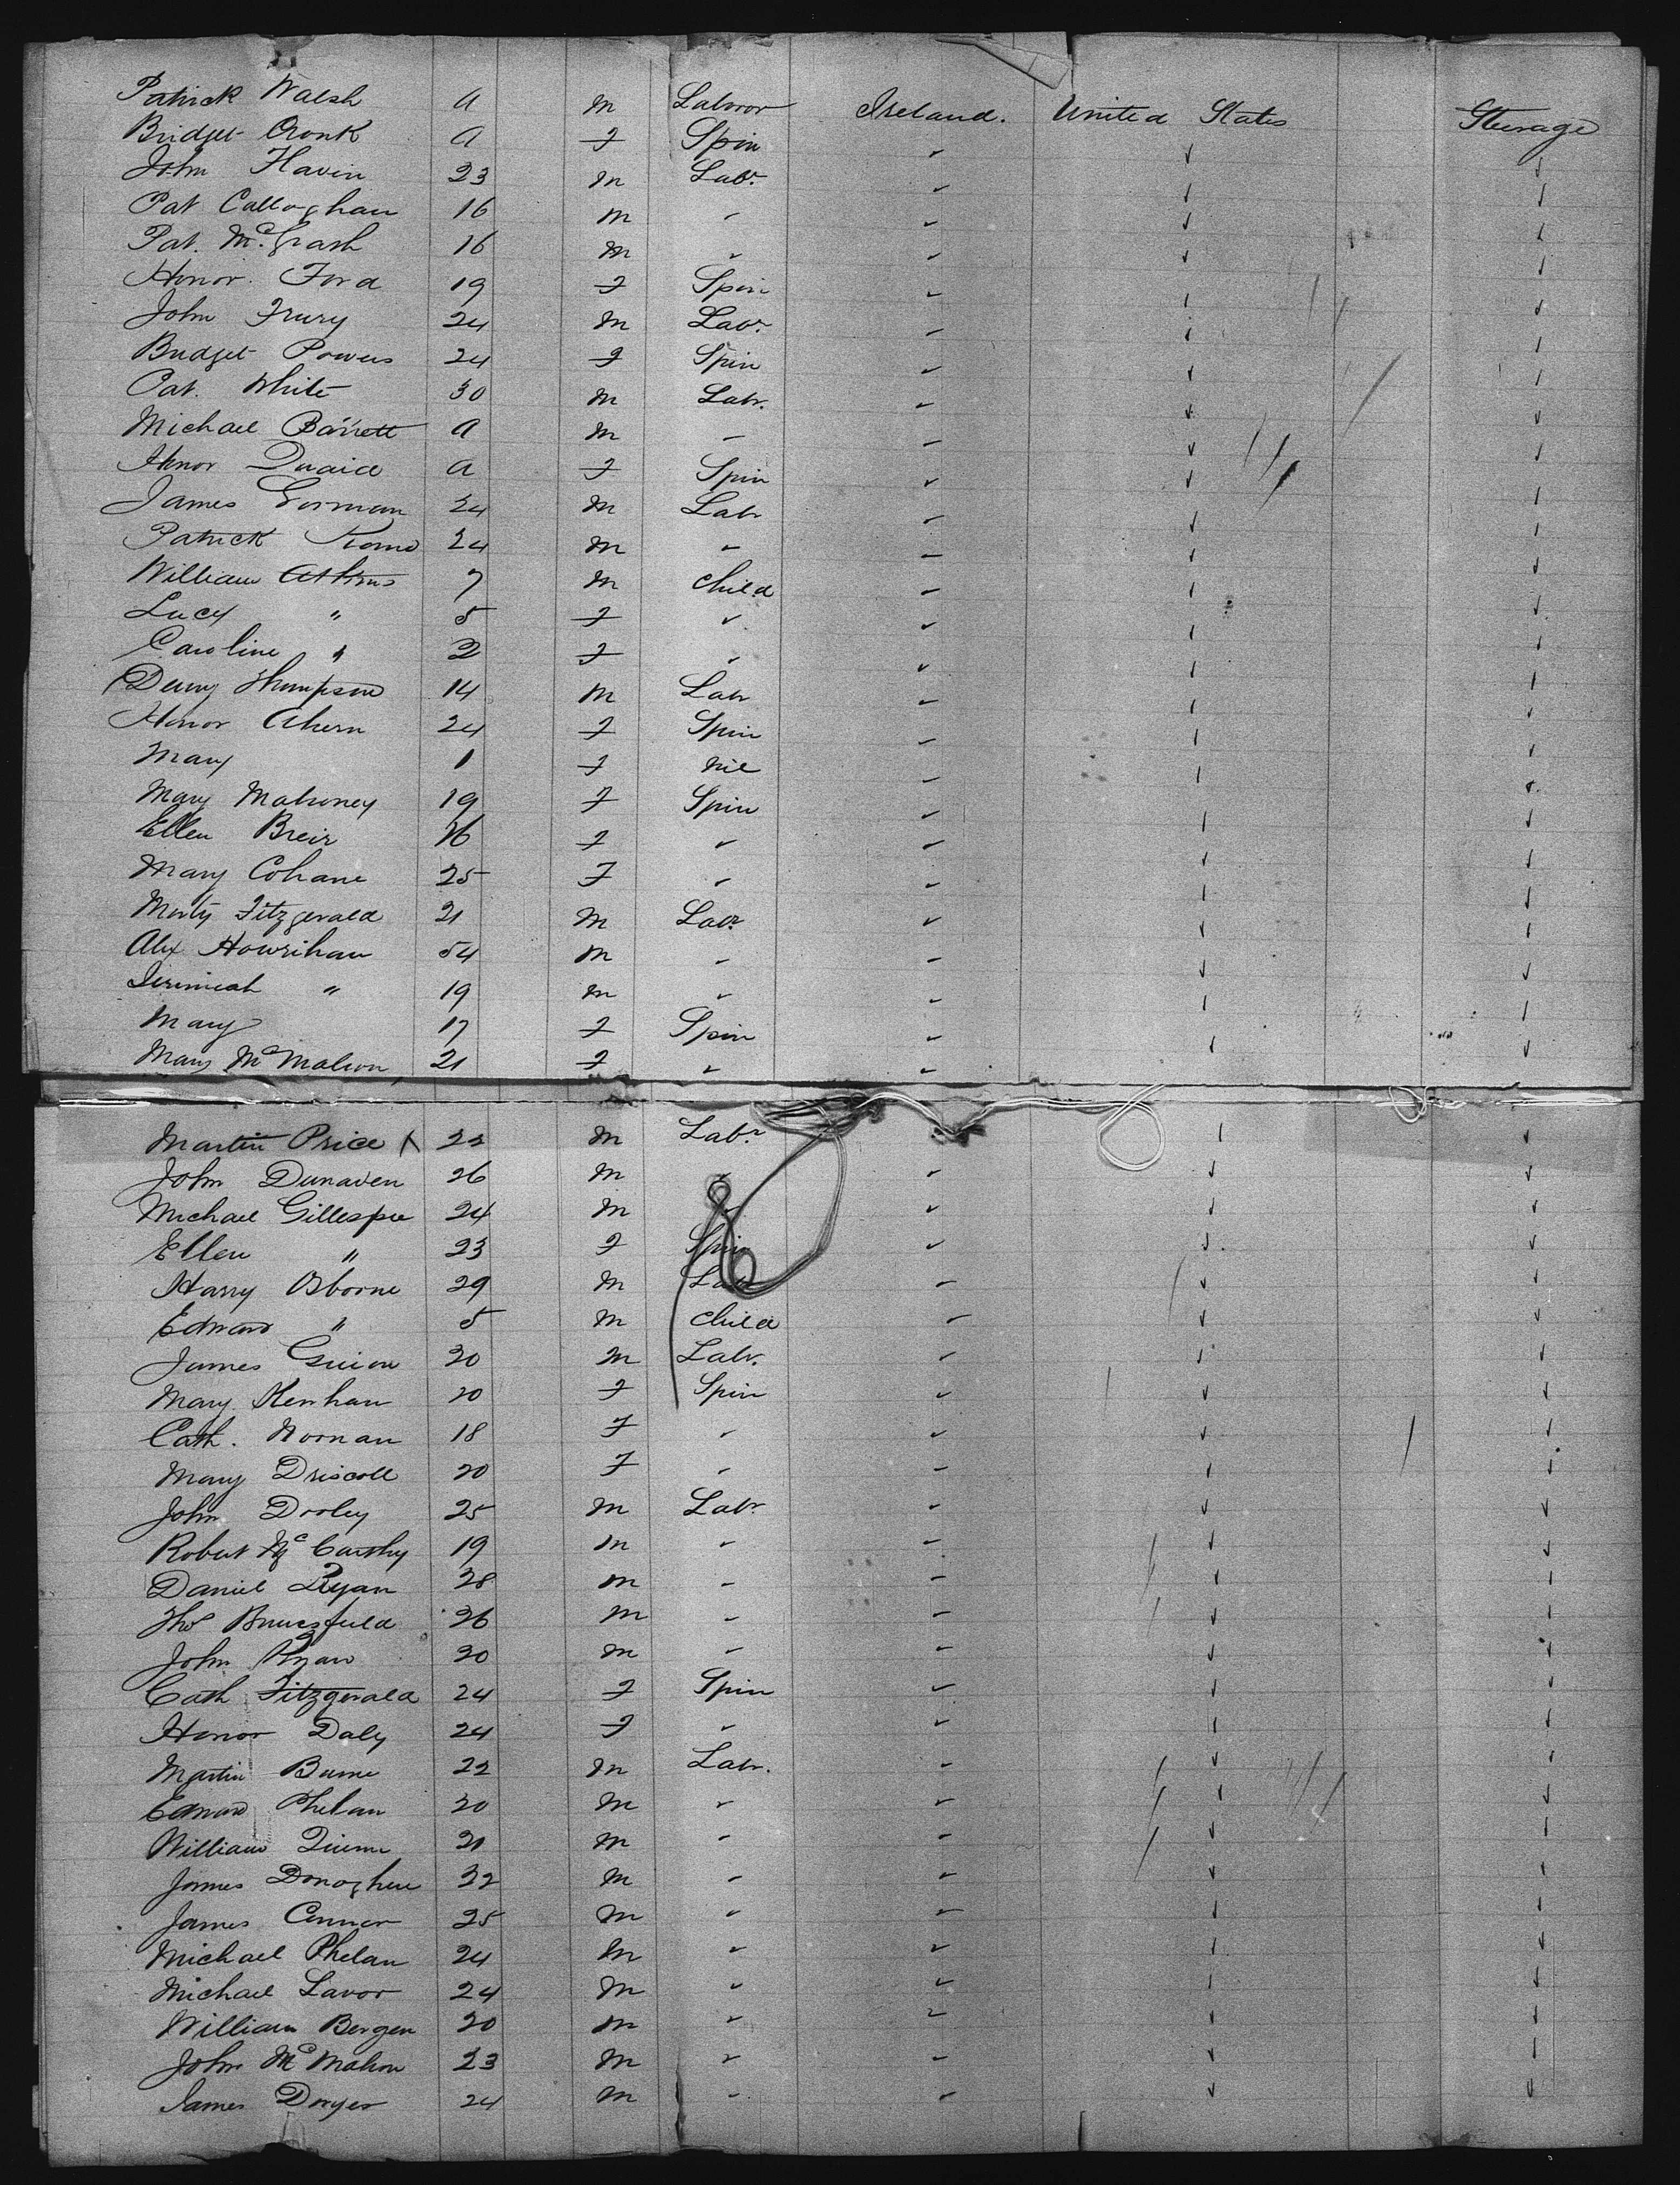 Patrick Walsh a M Labror Ireland. United States Steerage
Bridget Cronk a F Spin
John Flavin 23 M Labr.
Pat Callaghan 16 M
Pat. McGrath 16 M
Honor Ford 19 F Spin
John Frury 24 M Labr.
Bridget Powers 24 F Spin
Pat. White 30 M Labr.
Michael Barrett a M
Honor Quaid a F Spin
James Gorman 24 M Labr
Patrick 24 M "
William Atkins 7 M Child
Lucy " 5 F "
Caroline " 2 F "
Denny Thompson 14 M Labr
Honor Ahern 24 F Spin
Mary 1 F nil
Mary Mahoney 19 F Spin
Ellen 26 F "
Mary Cohane 25 F "
Morty Fitzgerald 21 M Labr.
Alex Howrihan 54 M "
Jeremiah " 19 M "
Mary 17 F Spin
Mary McMahon 21 F "
Martin Price X 22 M Labr
John Dunaven 26 M
Michael Gillespie 24 M
Ellen " 23 F Spin
Harry Osborne 29 M Labr
Edward " 5 M Child
James Guion 30 M Labr.
Mary Kenhan 20 F Spin
Cath. Noonan 18 F "
Mary Driscoll 20 F "
John Dooley 25 M Labr.
Robert McCarthy 19 M "
Daniel Ryan 28 M "
Thos 26 M "
John Ryan 20 M "
Cath Fitzgerald 24 F Spin
Honor Daly 24 F "
Martin Burne 22 M Labr.
Edward Phelan 20 M "
William Quinn 21 M "
James Donoghue 32 M "
James Connor 25 M "
Michael Phelan 24 M "
Michael Lavor 24 M "
William Bergen 20 M "
John McMahon 23 M "
James Dwyer 24 M "